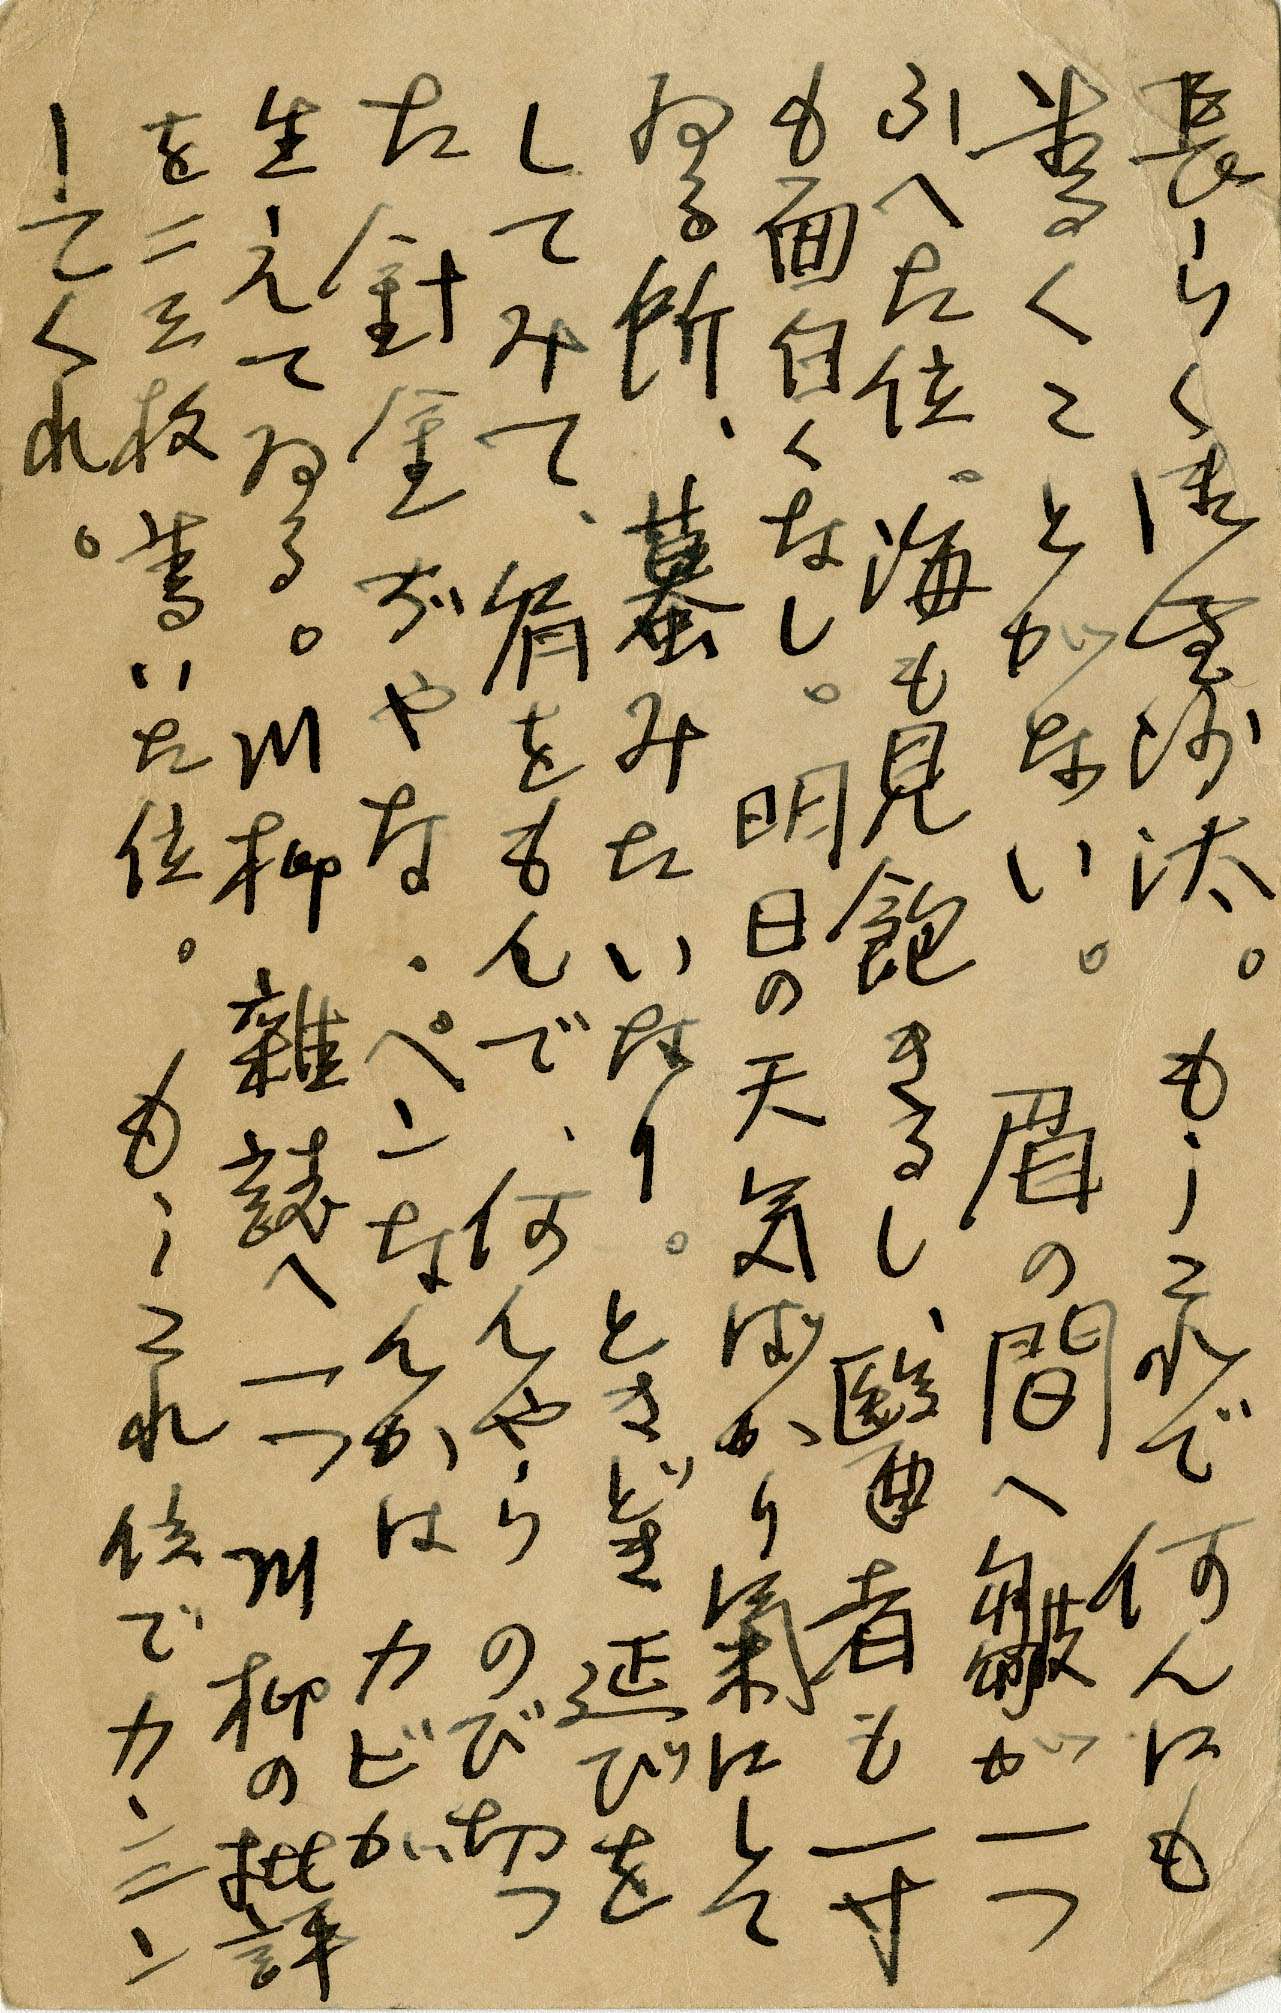 長らく御無沙汰。もうこれで何んにも
書くことがない。眉の間へ皺が一つ
ふへた位。海も見飽きるし、醫者も一寸
も面白くなし。明日の天気ばかり氣にして
ゐる所、蟇みたいなり。ときどき延びを
してみて、肩をもんで、何んやらのび切つ
た針金ぢやな。ペンなんかはカビが
生えてゐる。川柳雜誌へ一つ川柳の批評
を二三枚書いた位。もうこれ位でカンニン
してくれ。